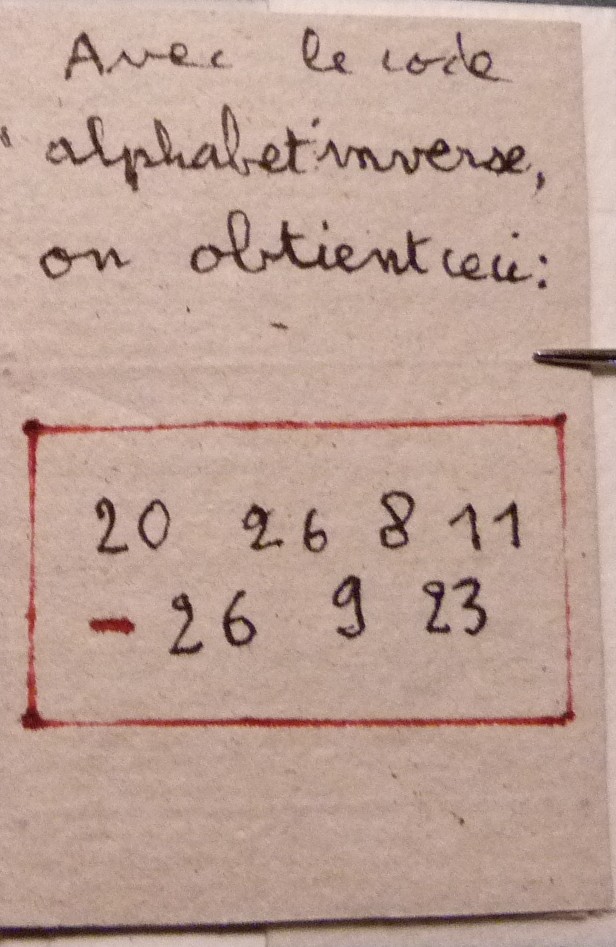 Avec le code
"alphabet inverse,
on obtient ceci:
20 26 8 11
- 26 9 23